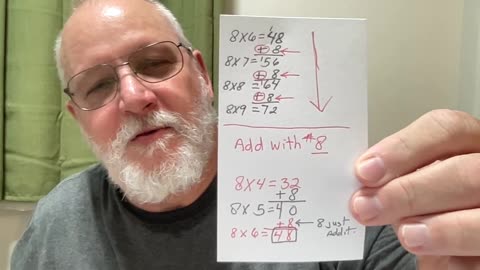 8x6=48
+8
8x7=56
+8
8x8=64
+8
8x9=72
Add with #8
8x4=32
+8
8x5=40
+8 ← 8 Just
8x6=48 Add it.